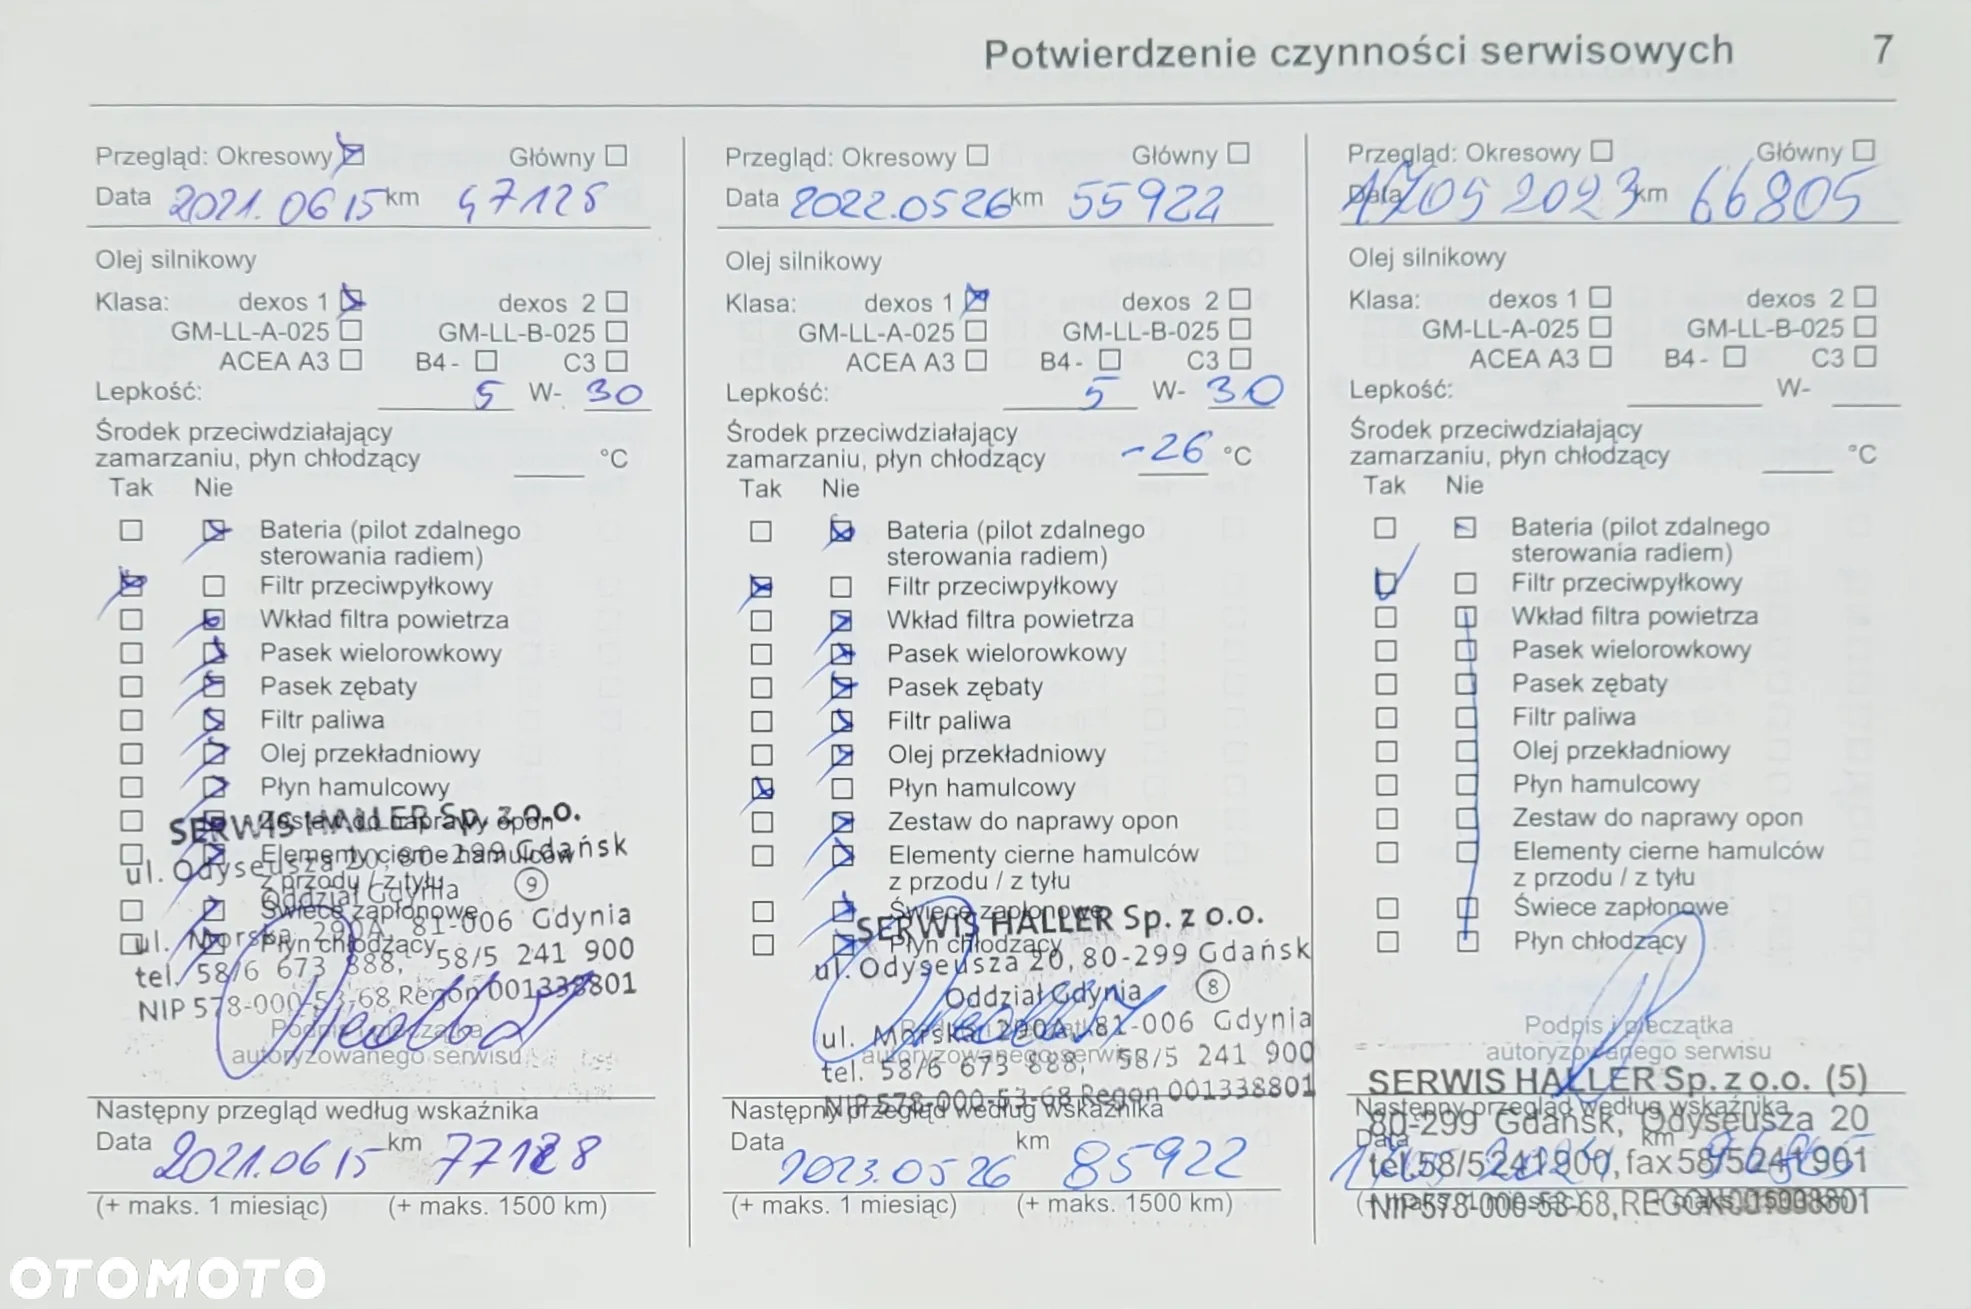 Potwierdzenie czynności serwisowych 7
Przegląd: Okresowy Główny
Data 2021.06 15 km 47128
Olej silnikowy
Klasa: dexos 1 dexos 2
GM-LL-A-025 GM-LL-B-025
ACEA A3 B4- C3
Lepkość: 5 W- 30
Środek przeciwdziałający
zamarzaniu, płyn chłodzący °C
Tak Nie
Bateria (pilot zdalnego
sterowania radiem)
Filtr przeciwpyłkowy
Wkład filtra powietrza
Pasek wielorowkowy
Pasek zębaty
Filtr paliwa
Olej przekładniowy
Płyn hamulcowy
Zestaw do naprawy opon
Elementy cierne hamulców
z przodu / z tyłu
Świece zapłonowe
Płyn chłodzący
SERWIS HALLER Sp. z o.o.
ul. Odyseusza 20, 80-299 Gdańsk
Oddział Gdynia 9
ul. Morska 290A, 81-006 Gdynia
tel. 58/6 673 888, 58/5 241 900
NIP 578-000-53-68 Regon 001338801
Podpis i pieczątka
autoryzowanego serwisu
Następny przegląd według wskaźnika
Data 2021.06 15 km 77128
(+ maks. 1 miesiąc) (+ maks. 1500 km)
Przegląd: Okresowy Główny
Data 2022.05 26 km 55922
Olej silnikowy
Klasa: dexos 1 dexos 2
GM-LL-A-025 GM-LL-B-025
ACEA A3 B4- C3
Lepkość: 5 W- 30
Środek przeciwdziałający
zamarzaniu, płyn chłodzący -26 °C
Tak Nie
Bateria (pilot zdalnego
sterowania radiem)
Filtr przeciwpyłkowy
Wkład filtra powietrza
Pasek wielorowkowy
Pasek zębaty
Filtr paliwa
Olej przekładniowy
Płyn hamulcowy
Zestaw do naprawy opon
Elementy cierne hamulców
z przodu / z tyłu
Świece zapłonowe
Płyn chłodzący
SERWIS HALLER Sp. z o.o.
ul. Odyseusza 20, 80-299 Gdańsk
Oddział Gdynia 8
ul. Morska 290A, 81-006 Gdynia
tel. 58/6 673 888, 58/5 241 900
NIP 578-000-53-68 Regon 001338801
Podpis i pieczątka
autoryzowanego serwisu
Następny przegląd według wskaźnika
Data 2023.05 26 km 85922
(+ maks. 1 miesiąc) (+ maks. 1500 km)
Przegląd: Okresowy Główny
Data 17 05 2023 km 66805
Olej silnikowy
Klasa: dexos 1 dexos 2
GM-LL-A-025 GM-LL-B-025
ACEA A3 B4- C3
Lepkość: W-
Środek przeciwdziałający
zamarzaniu, płyn chłodzący °C
Tak Nie
Bateria (pilot zdalnego
sterowania radiem)
Filtr przeciwpyłkowy
Wkład filtra powietrza
Pasek wielorowkowy
Pasek zębaty
Filtr paliwa
Olej przekładniowy
Płyn hamulcowy
Zestaw do naprawy opon
Elementy cierne hamulców
z przodu / z tyłu
Świece zapłonowe
Płyn chłodzący
Podpis i pieczątka
autoryzowanego serwisu
SERWIS HALLER Sp. z o.o. (5)
80-299 Gdańsk, Odyseusza 20
tel.58/5241900, fax58/5241901
NIP578-000-53-68, REGON001338801
Następny przegląd według wskaźnika
Data km
OTOMOTO